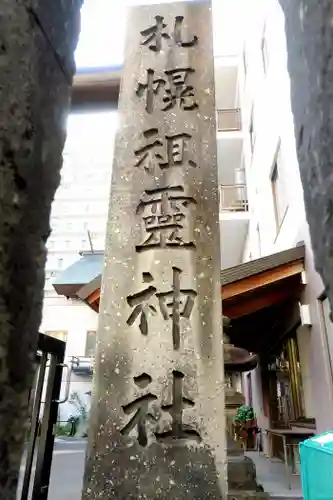 札幌祖靈神社